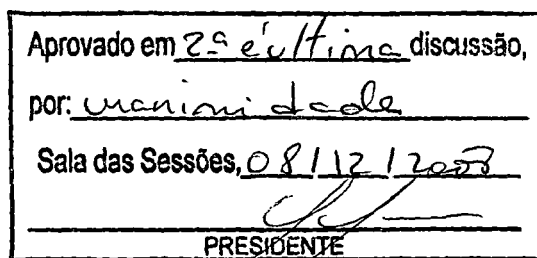 Aprovado em 2ª e última discussão,
por: unanimidade
Sala das Sessões, 08/12/2008
PRESIDENTE